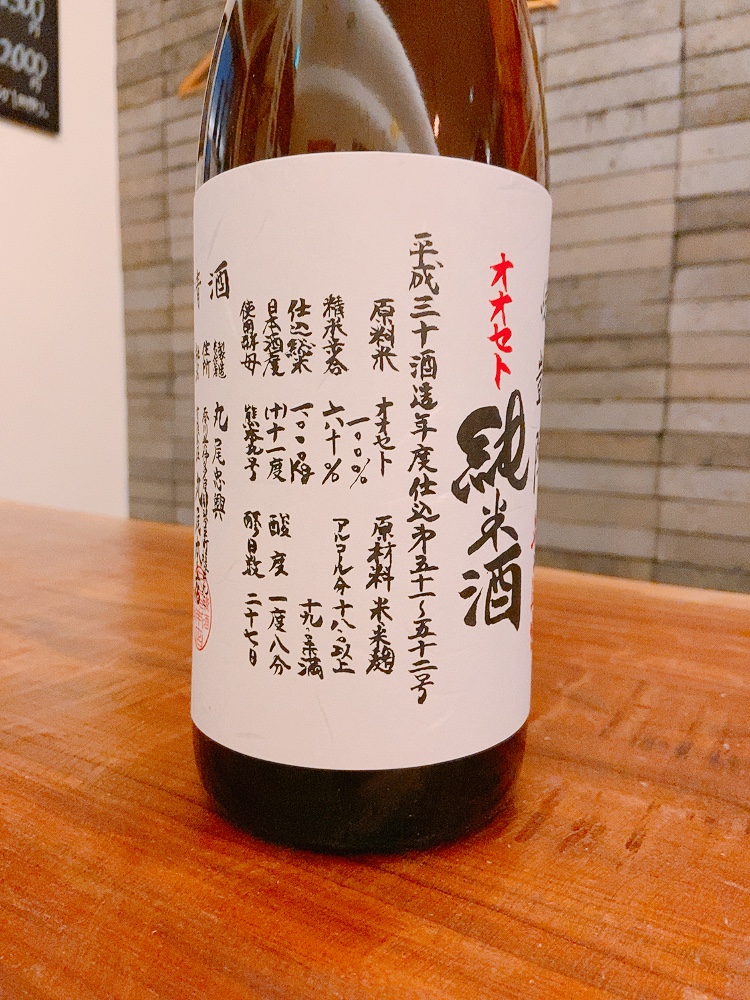 オオセト
純米酒
平成三十酒造年度仕込第五十一〜五十二号
原料米 オオセト一〇〇% 原材料 米米麹
精米歩合 六十% アルコール分 十八.〇以上
十九.〇未満
仕込総米 一〇〇〇Kg
日本酒度 (+)十一度 酸度 一度八分
使用酵母 熊本九号 醪日数 二十七日
酒
製造 丸尾忠興
住所
2.000